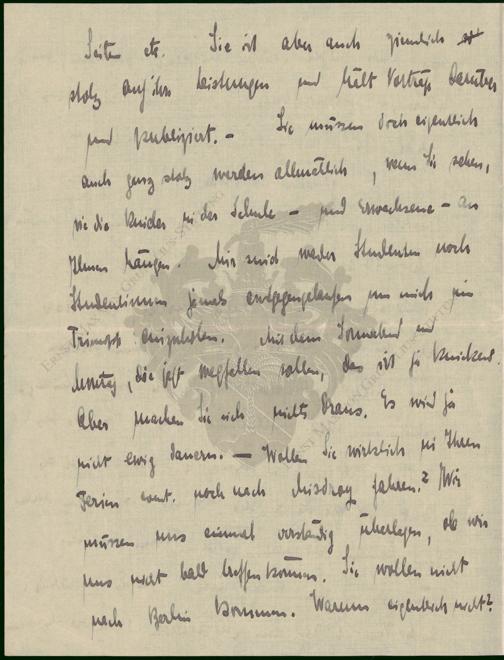 Seiten etc. Sie ist aber auch ziemlich
stolz auf ihre Leistungen und hält Vorträge darüber
und publiziert. – Sie müssen doch eigentlich
auch ganz stolz werden allmählich, wenn Sie sehen,
wie die Kinder in der Schule – und Erwachsene – an
Ihnen hängen. Mir sind weder Studenten noch
Studentinnen jemals entgegengelaufen um mich im
Triumph einzuholen. Mit dem Sonnabend und
Montag, die jetzt wegfallen sollen, das ist ja knickend.
Aber machen Sie sich nichts draus. Es wird ja
nicht ewig dauern. – Wollen Sie wirklich in Ihren
Ferien noch nach Misdroy fahren? Wir
müssen uns einmal verständig überlegen, ob wir
uns nicht bald treffen können. Sie wollen nicht
nach Berlin kommen. Warum eigentlich nicht?